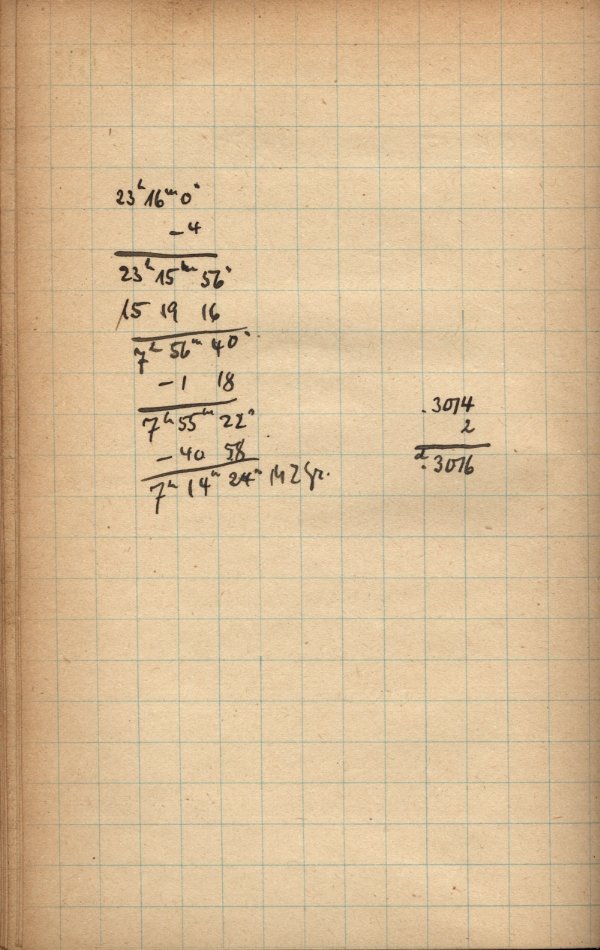 23ʰ 16ᵐ 0ˢ
-4
23ʰ 15ᵐ 56ˢ
15 19 16
7ʰ 56ᵐ 40ˢ
-1 18
7ʰ 55ᵐ 22ˢ
-40 58
7ʰ 14ᵐ 24ˢ M Z Gr.
.3014
2
ᵈ.3016